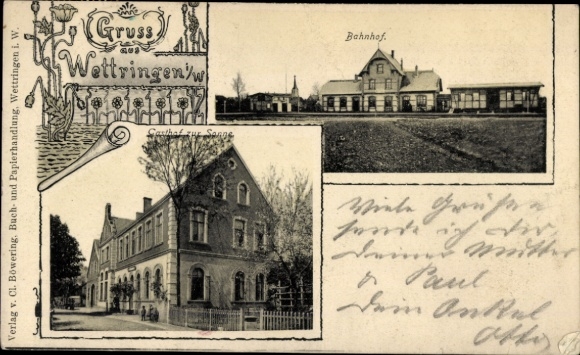 Gruss
aus
Wettringen i/W
Bahnhof.
Gasthof zur Sonne
Verlag v. Cl. Böwering, Buch- und Papierhandlung, Wettringen i. W.
Viele Grüße
sende ich dir,
deiner Mutter
& Paul
Dein Onkel
Otto